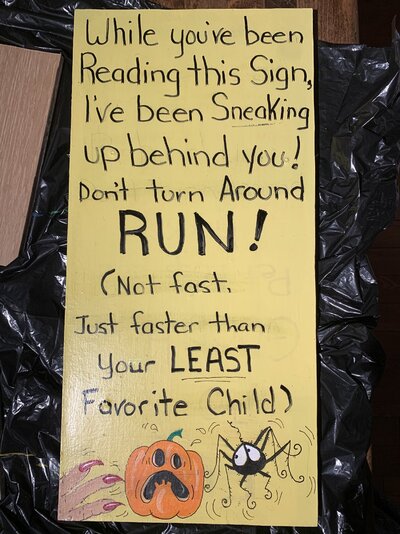 While you've been
Reading this Sign,
I've been Sneaking
up behind you!
Don't turn Around
RUN!
(Not fast,
Just faster than
your LEAST
Favorite Child)